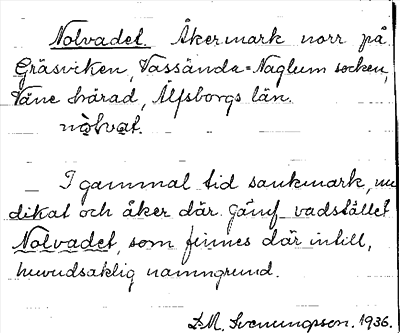 Nolvadet. Åkermark norr på
Gräsviken, Vassända-Naglum socken,
Väne härad, Älfsborgs län.
nòlvat.
I gammal tid sankmark, nu
dikat och åker där. Jämf vadstället
Nolvadet, som finnes där intill,
huvudsaklig namngrund.
D.M. Svenungsson. 1936.